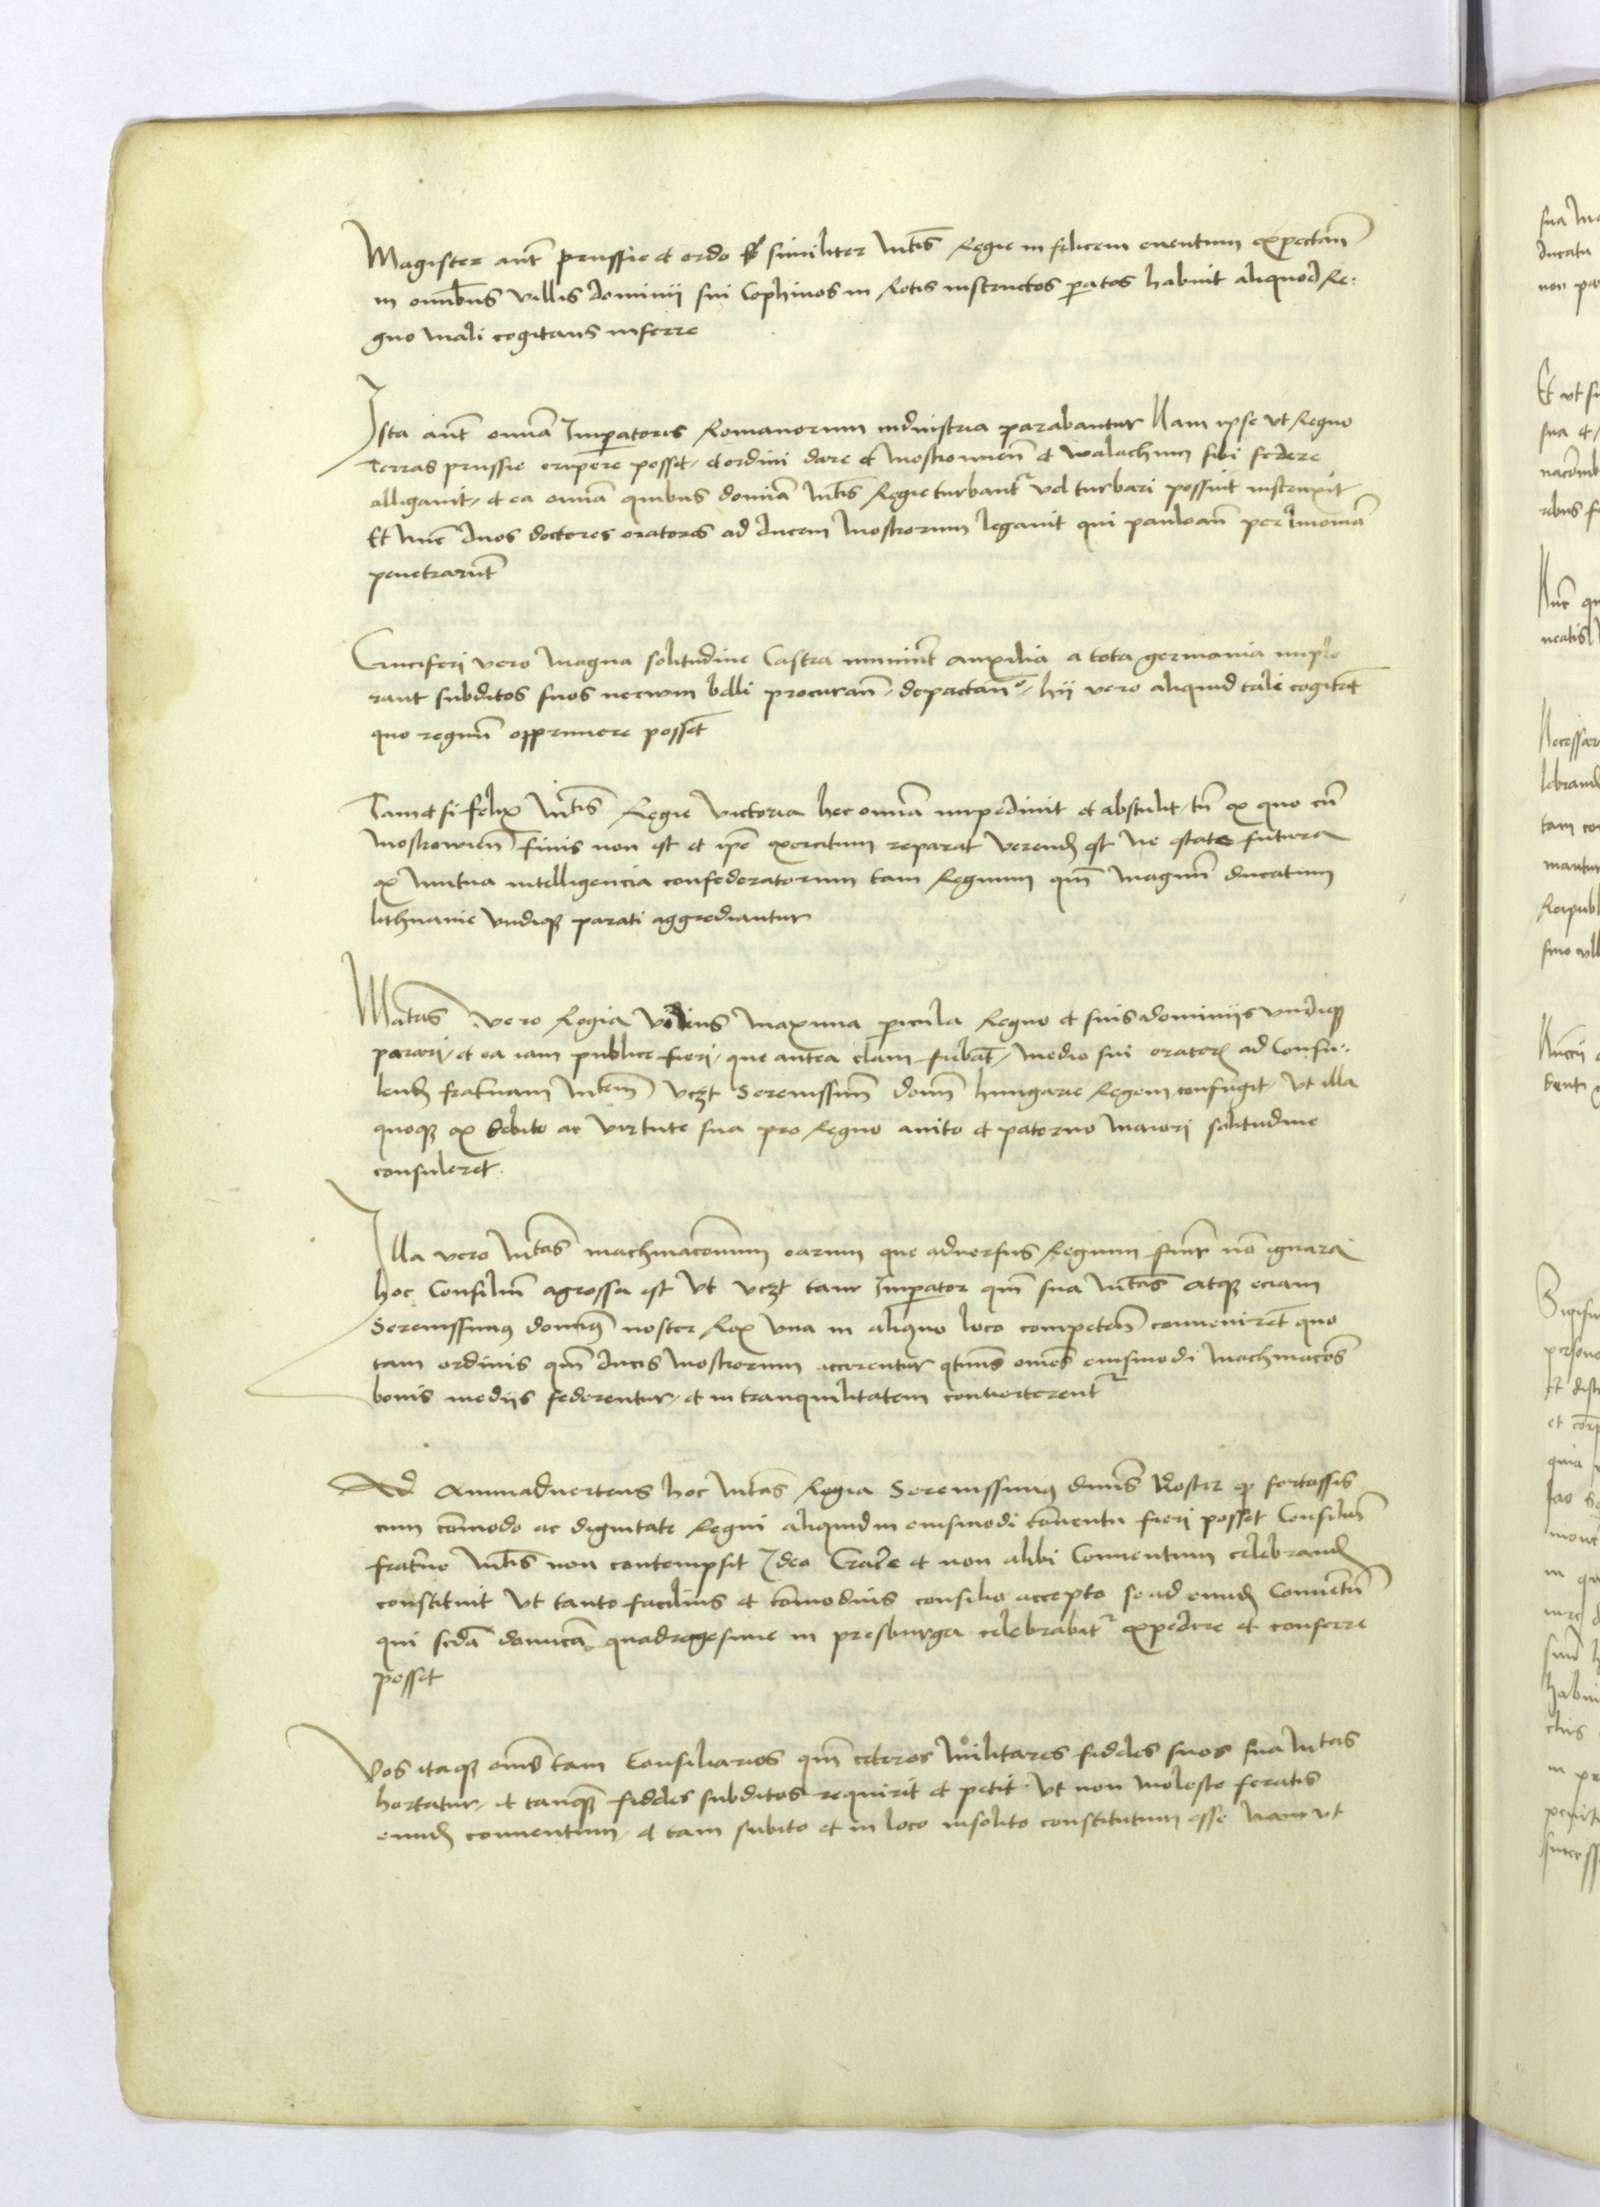 Magister aut prussie et ordo similiter Mtis Regie infelicem euentum expectan
in omnibus villis dominii sui Cophinos in Rotis instructos paratos habuit aliquod Re-
gno mali cogitans inferre
Ista aut omia Imperatoris Romanorum industria parabantur Nam ipse vt Regno
Terras prussie eripere posset et ordini dare et Moskouien et walachum sibi federe
alligauit, et ea omia quibus dominia Mtis Regie turbant vel turbari possint instruxit
Et nunc duos doctores oratores ad ducem Moskorum legauit qui pauloan per liuoniam
penetrarunt
Cruciferi vero magna solitudine Castra muniunt auxilia a tota germania implo
rant subditos suos necum belli procuran depactan, hii vero aliquid tale cogitant
quo regnum opprimere possent
Tametsi felix Mtis Regie victoria hec omia impediuit et abstulit, tn ex quo cu
Moskouien finis non est et ipe exercitum reparat verend est ne estate futura
ex mutua intelligencia confederatorum tam Regnum qm magnu ducatum
lithuanie vndique parati aggrediantur
Mtas vero Regia videns maxima pericula Regno et suis dominiis vndique
parari, et ea iam publice fieri, que antea clam fiebat, medio sui orator ad Consu-
lend fraternam Mtem vczt Serenissimu domm hungarie Regem confugit, vt illa
quoque ex debito ac virtute sua pro Regno auito et paterno maiori solitudine
consuleret
Illa vero Mtas machinacionum earum que aduersus Regnum fiunt no ignara
hoc Consilium agressa est vt vczt tam Imperator qm sua Mtas atque eciam
Serenissimus dominus noster Rex vna in aliquo loco competen conuenirent quo
tam ordinis qm ducis Moskorum accerentur qtinus omes eiusmodi machinacoes
bonis mediis sederentur, et in tranquilitatem conuerterent
Ad Animaduertens hoc Mtas Regia Serenissimus dnus Noster q fortassis
cum comodo ac dignitate Regni aliquid in eiusmodi conuentu fieri posset Consilium
fraterno Mtis non contempsit Idea Crace et non alibi Conuentum celebrand
constituit vt tanto facilius et comodius consilio accepto se ad eund Conuentum
qui secda domica quadragesime in presburga celebrabit expedire et conferre
posset
Vos itaque omes tam Consiliarios qm ceteros Militares fideles suos sua Mtas
hortatur, et tanque fideles subditos requirit et petit vt non moleste feratis
eund conuentum, et tam subito et in loco insolito constitutum esse nam vt